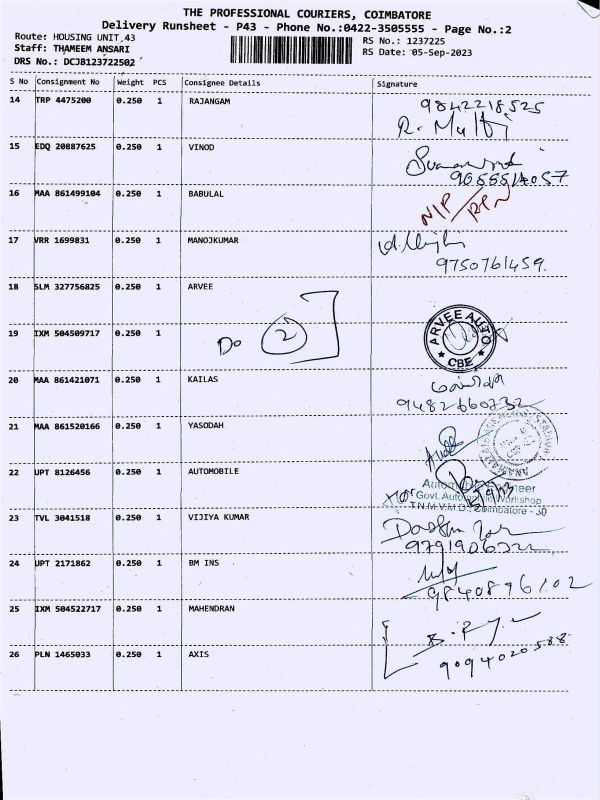 THE PROFESSIONAL COURIERS, COIMBATORE
Delivery Runsheet - P43 - Phone No.:0422-3505555 - Page No.:2
Route: HOUSING UNIT,43
RS No.: 1237225
Staff: THAMEEM ANSARI
RS Date: 05-Sep-2023
DRS No.: DCJB123722502
S No Consignment No Weight PCS Consignee Details Signature
14 TRP 4475200 0.250 1 RAJANGAM 9842218525
15 EDQ 20887625 0.250 1 VINOD
16 MAA 861499104 0.250 1 BABULAL N/P
17 VRR 1699831 0.250 1 MANOJKUMAR
9750761459.
18 SLM 327756825 0.250 1 ARVEE
ARVEE AUTO
CBE
19 IXM 504509717 0.250 1 Do 2
20 MAA 861421071 0.250 1 KAILAS
21 MAA 861520166 0.250 1 YASODAH
22 UPT 8126456 0.250 1 AUTOMOBILE
T.N.M.V.M.D., Coimbatore - 30
23 TVL 3041518 0.250 1 VIJIYA KUMAR
24 UPT 2171862 0.250 1 BM INS
9840896102
25 IXM 504522717 0.250 1 MAHENDRAN
26 PLN 1465033 0.250 1 AXIS 9094020588